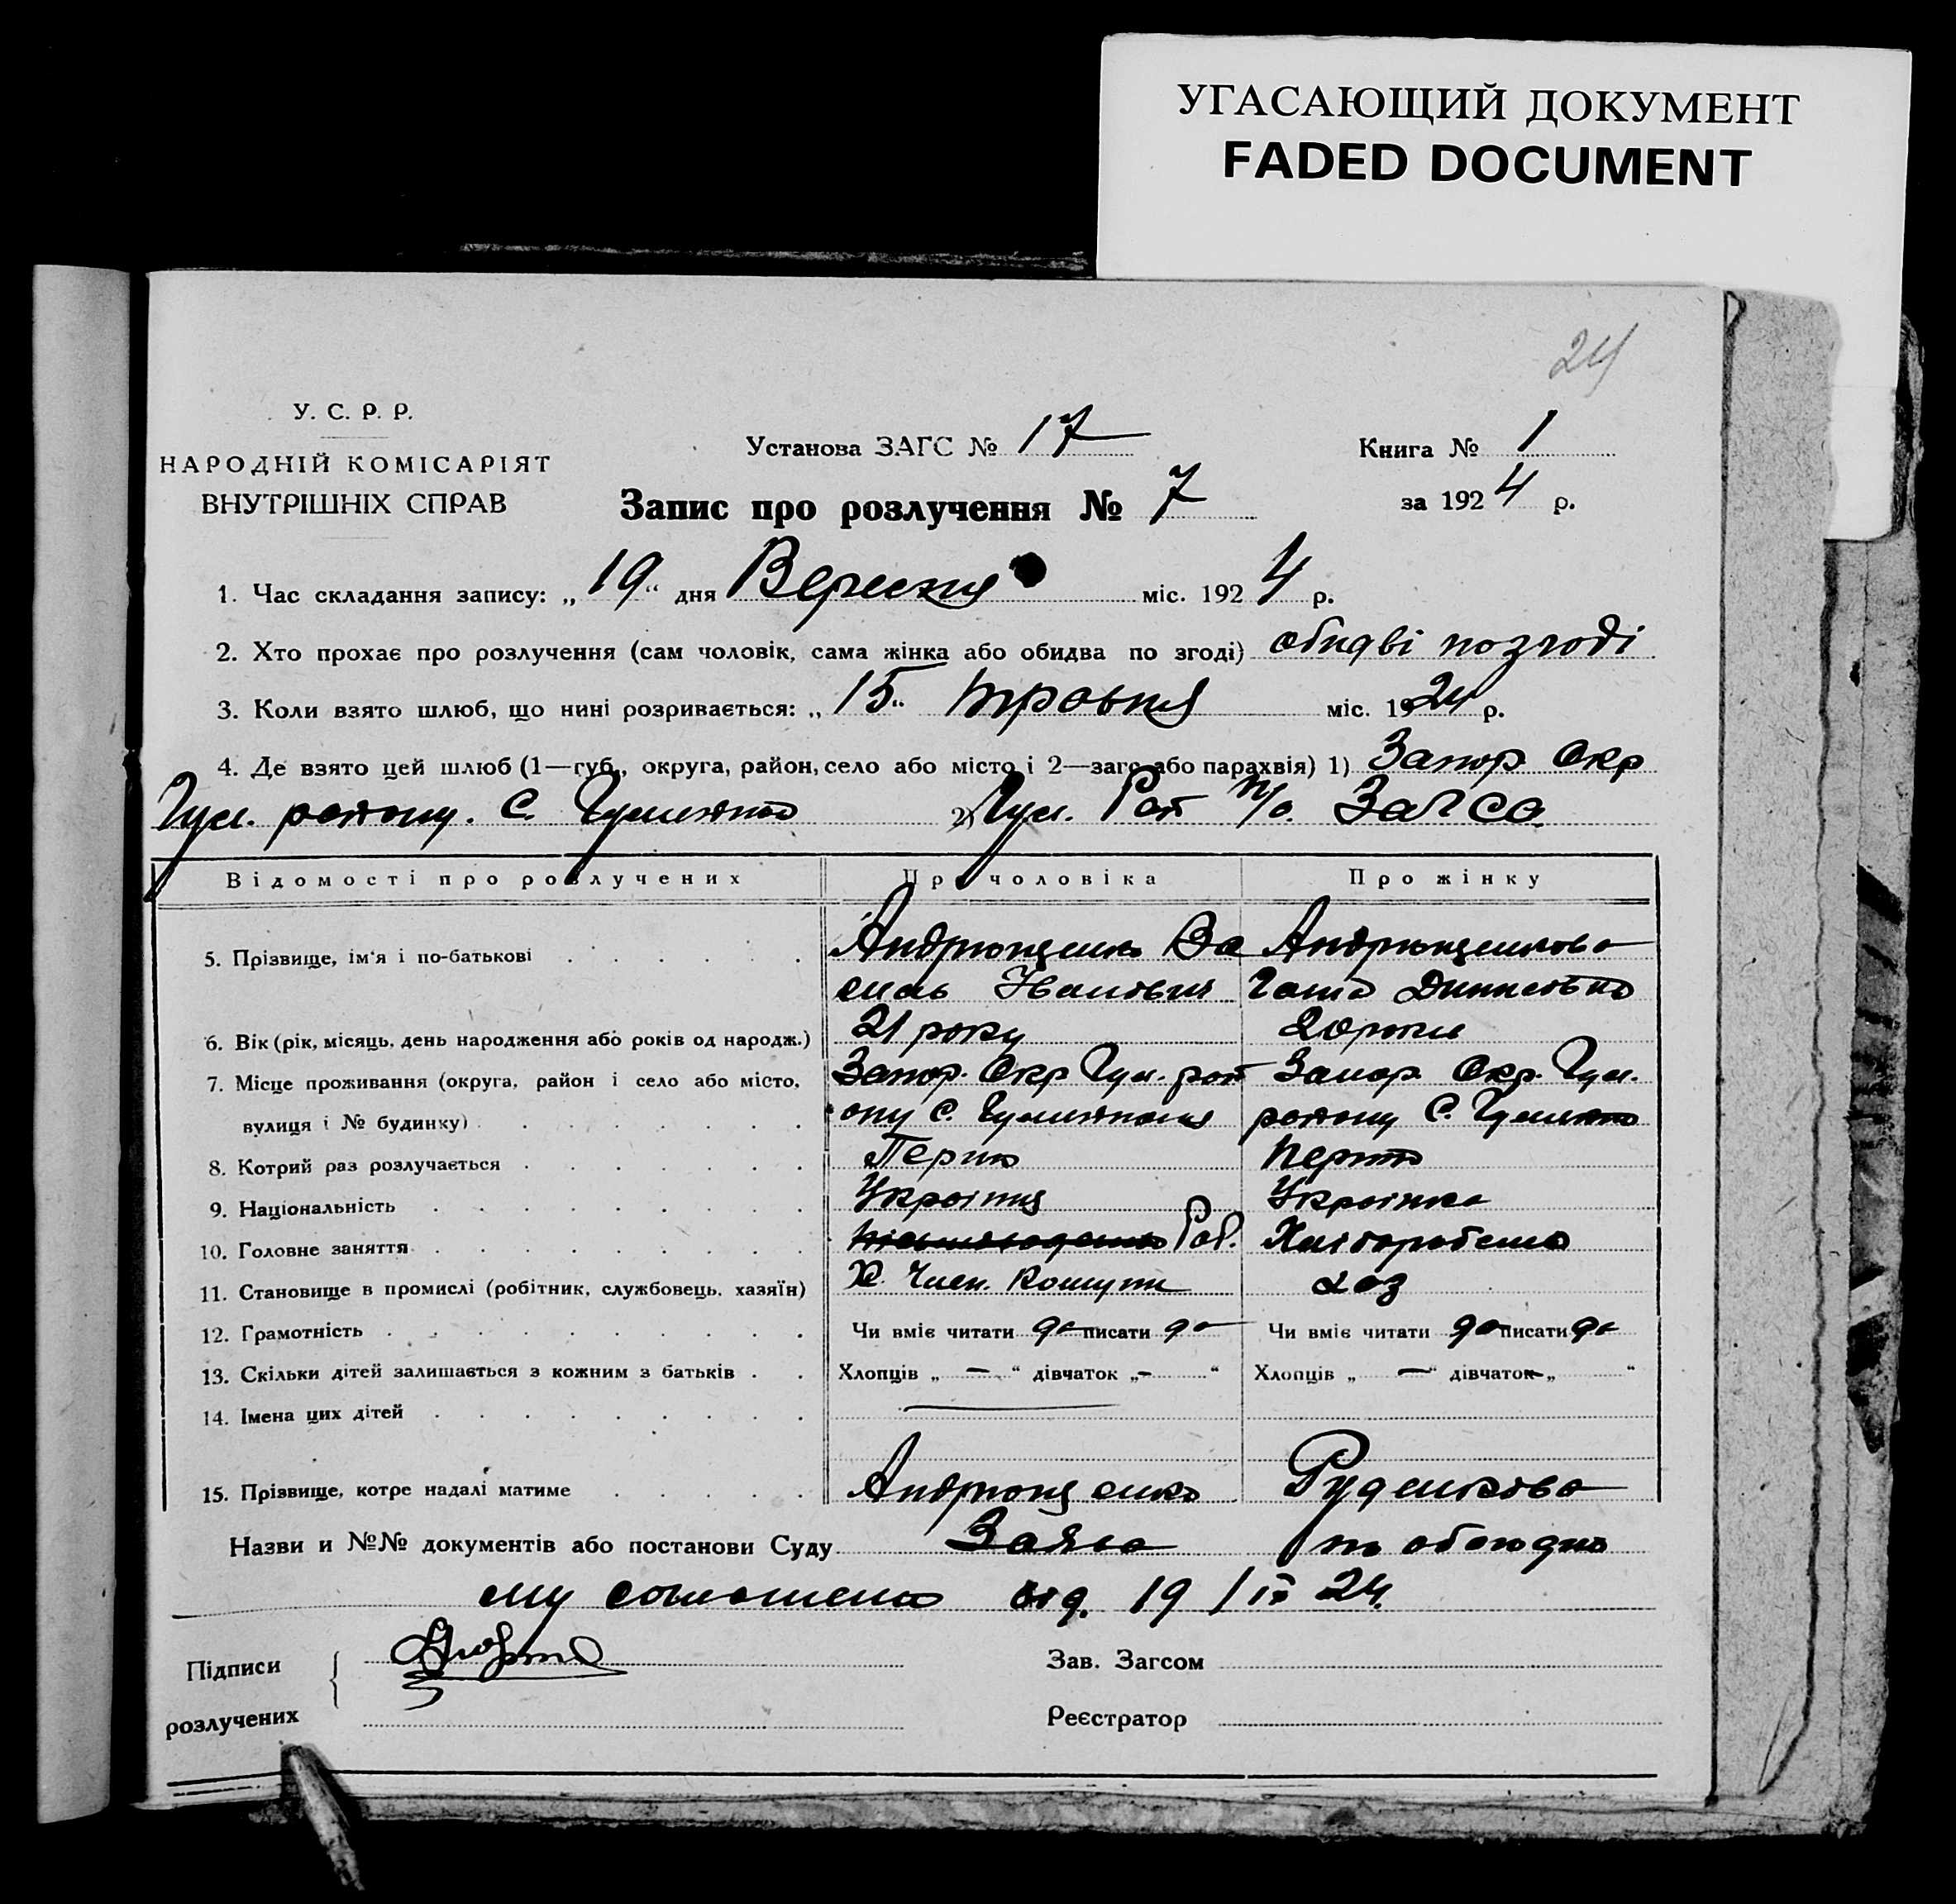 УГАСАЮЩИЙ ДОКУМЕНТ
FADED DOCUMENT
24
У. С. Р. Р.
НАРОДНІЙ КОМІСАРІЯТ
ВНУТРІШНІХ СПРАВ
Установа ЗАГС № 17
Книга № 1
за 1924 р.
Запис про розлучення № 7
1. Час складання запису: „19“ дня Вересня міс. 1924 р.
2. Хто прохає про розлучення (сам чоловік, сама жінка або обидва по згоді) обидві по згоді
3. Коли взято шлюб, що нині розривається: „15“ травня міс. 1924 р.
4. Де взято цей шлюб (1—губ., округа, район, село або місто і 2—загс або парахвія) 1) Запор Окр
району. С. 2) Рай п/о. Загса
Відомості про розлучених Про чоловіка Про жінку
5. Прізвище, ім‘я і по-батькові Андрющенко Ва Андрющенкова
силь Іванович
6. Вік (рік, місяць, день народження або років од народж.) 21 року 20 роки
7. Місце проживання (округа, район і село або місто, Запор. Окр рай Запор Окр.
вулиця і № будинку) ону С. району С.
8. Котрий раз розлучається Перше перше
9. Національність Українец Українка
10. Головне заняття Роб. Хліборобство
11. Становище в промислі (робітник, службовець, хазяїн) Член. Комуни хоз
12. Грамотність Чи вміє читати да писати да Чи вміє читати да писати да
13. Скільки дітей залишається з кожним з батьків Хлопців „ — “ дівчаток „ — “ Хлопців „ — “ дівчаток — „ “
14. Імена цих дітей
15. Прізвище, котре надалі матиме Андрющенко Руденкова
Назви и №№ документів або постанови Суду Заява по обоюдно
му соглашению від. 19/ІХ 24.
Підписи
розлучених
Зав. Загсом
Реєстратор